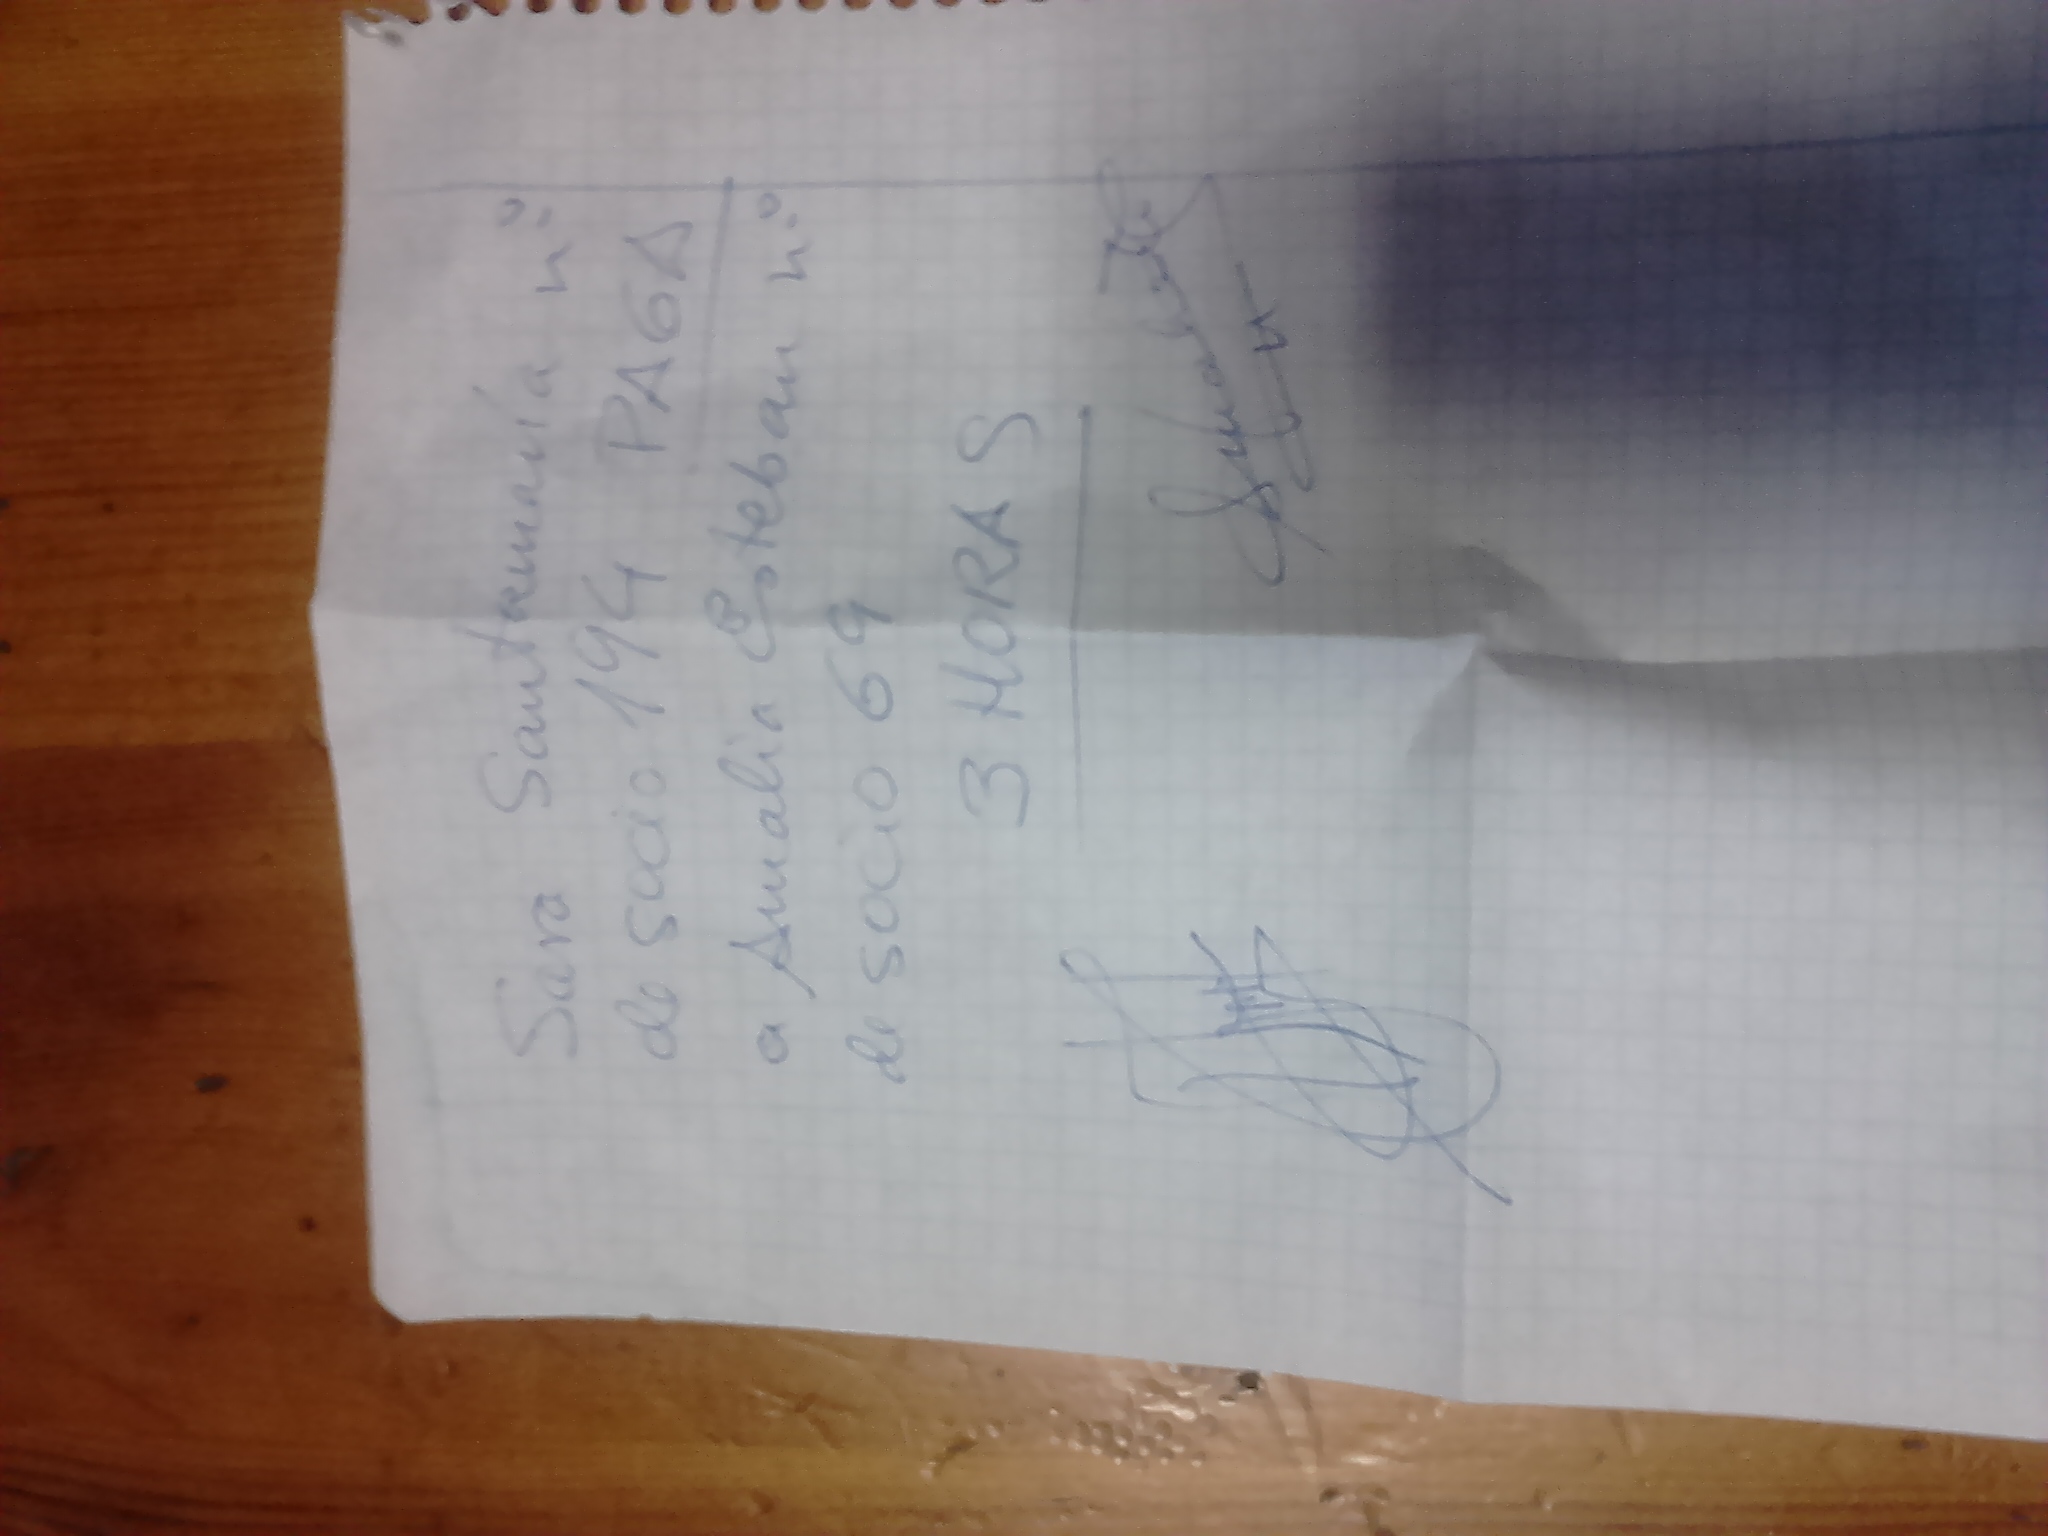 Sara Santamaría n.º
de socio 194 PAGA
a Amalia Esteban n.º
de socio 69
3 HORAS